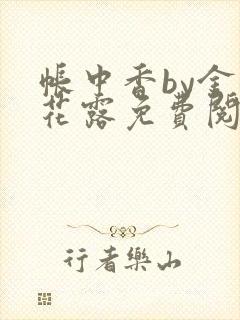 帳中香by金
花露免費閱
行者樂山